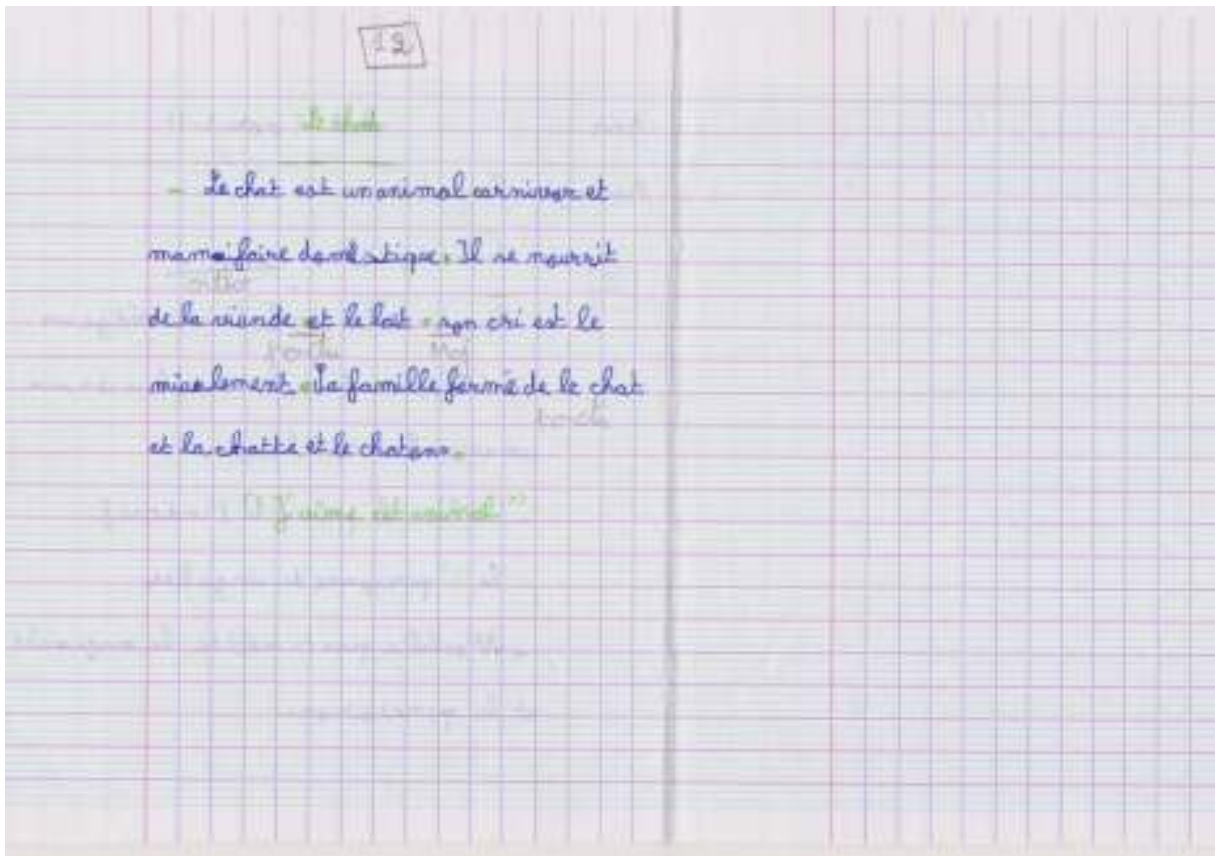 12
Le chat
- Le chat est un animal carnivor et
mamaifaire domestique. Il se nourrit
ortho
de la viande et le lait . son cri est le
Ponctu Maj
miaulement. Sa famille formé de le chat
ponctu
et la chatte et le chatons.
"J'aime cet animal"